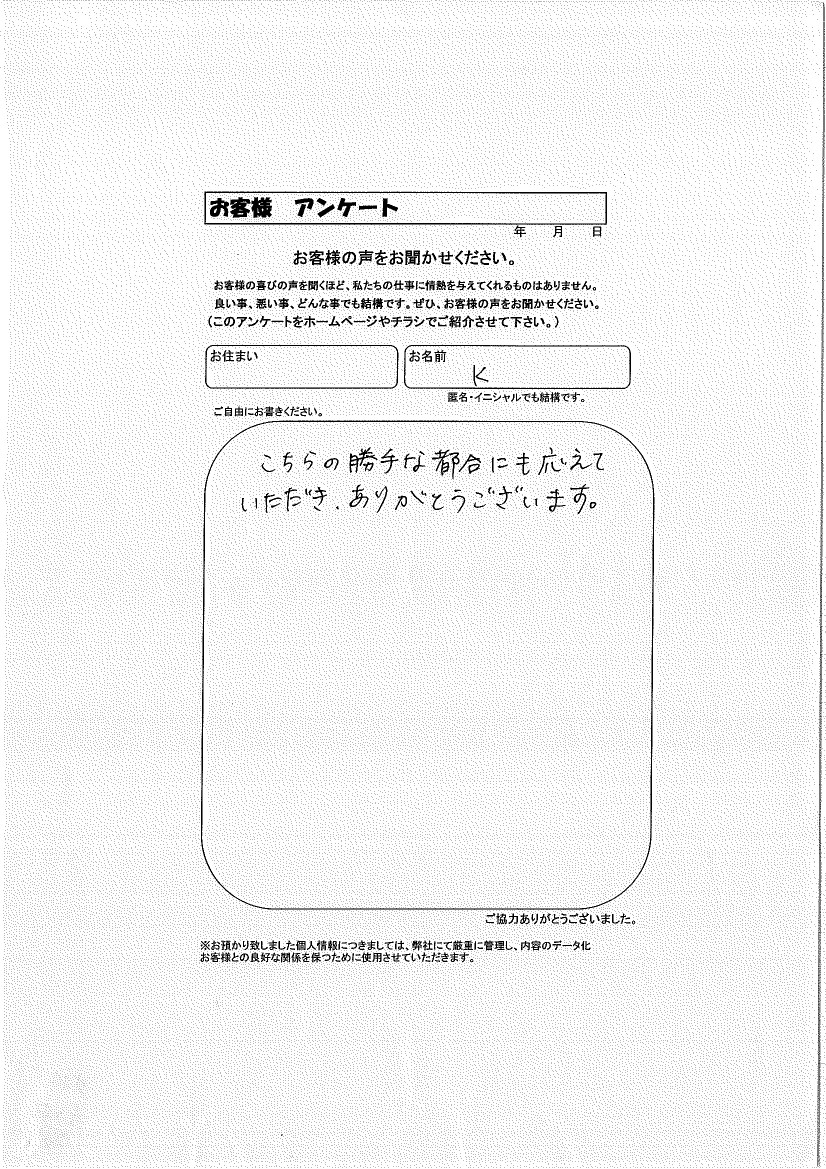 お客様　アンケート
年　　月　　日
お客様の声をお聞かせください。
お客様の喜びの声を聞くほど、私たちの仕事に情熱を与えてくれるものはありません。
良い事、悪い事、どんな事でも結構です。ぜひ、お客様の声をお聞かせください。
（このアンケートをホームページやチラシでご紹介させて下さい。）
お住まい　お名前
K
匿名・イニシャルでも結構です。
ご自由にお書きください。
こちらの勝手な都合にも応えて
いただだき、ありがとうございます。
ご協力ありがとうございました。
※お預かり致しました個人情報につきましては、弊社にて厳重に管理し、内容のデータ化
お客様との良好な関係を保つために使用させていただきます。